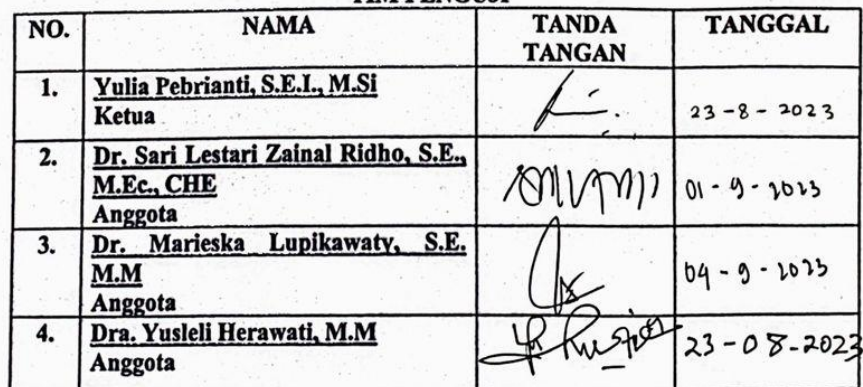 NO. NAMA TANDA TANGAN TANGGAL
1. Yulia Pebrianti, S.E.I., M.Si
Ketua
23-8-2023
2. Dr. Sari Lestari Zainal Ridho, S.E.,
M.Ec., CHE
Anggota
01-9-2023
3. Dr. Marieska Lupikawaty, S.E.
M.M
Anggota
04-9-2023
4. Dra. Yusleli Herawati, M.M
Anggota
23-08-2023